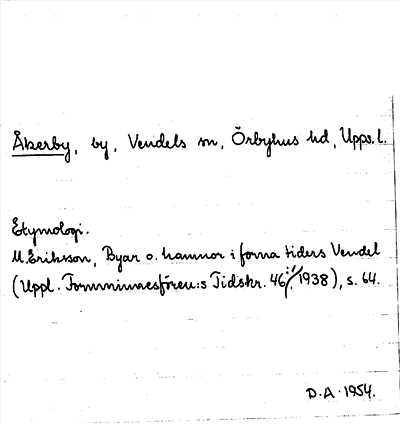 Åkerby, by, Vendels sn, Örbyhus hd, Upps. l.
Etymologi.
M. Eriksson, Byar o. hamnor i forna tiders Vendel
(Uppl. Fornminnesfören:s Tidskr. 46:1/1938), s. 64.
D.A. 1954.